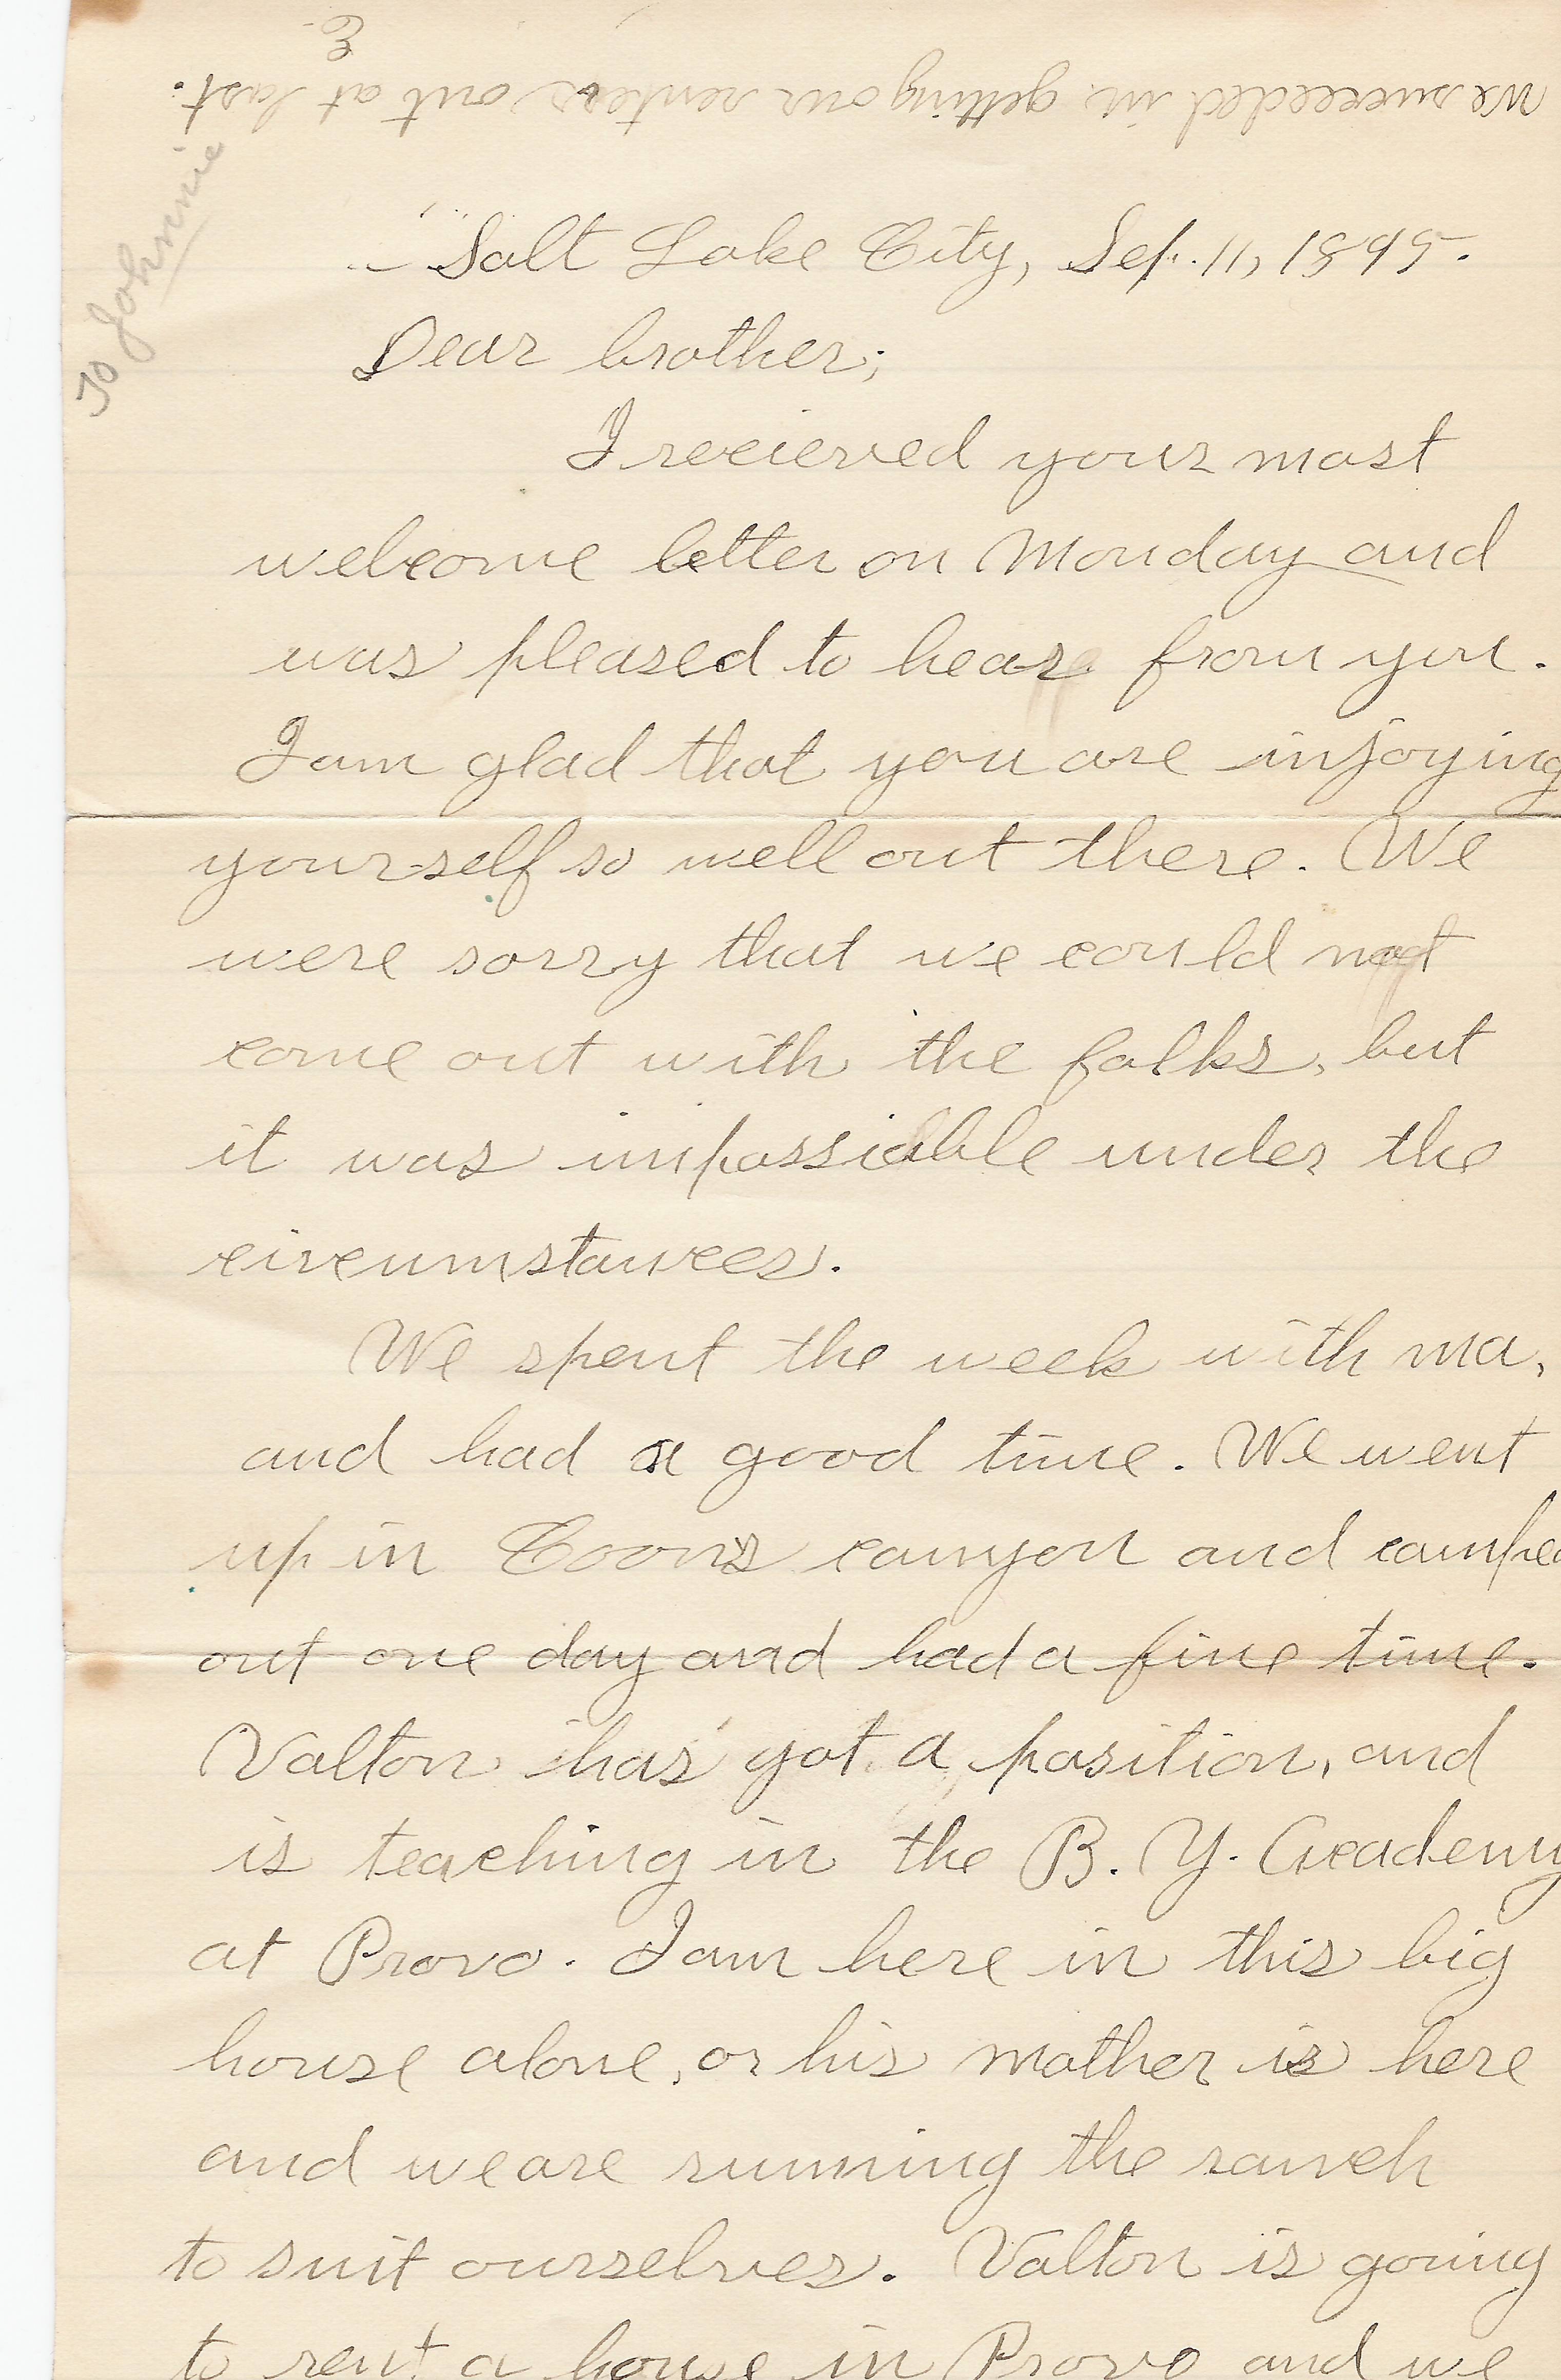 We succeeded in getting our renters out at last.
E.
To Johnnie
Salt Lake City, Sep. 11, 1895.
Dear brother;
I recieved your most
welcome letter on Monday and
was pleased to hear from you.
I am glad that you are injoying
yourself so well out there. We
were sorry that we could not
come out with the folks, but
it was impossiable under the
circumstances.
We spent the week with ma,
and had a good time. We went
up in Coon's canyon and camped
out one day and had a fine time.
Valton has got a position, and
is teaching in the B. Y. Academy
at Provo. I am here in this big
house alone, or his mother is here
and we are running the ranch
to suit ourselves. Valton is going
to rent a house in Provo and we